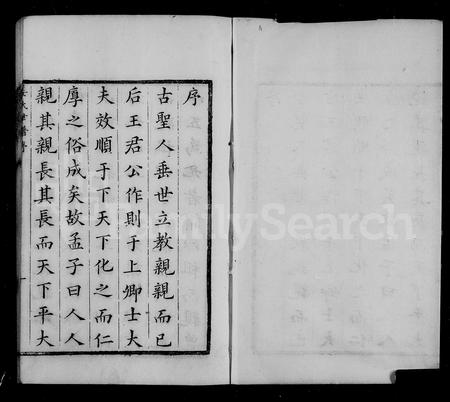 序
古聖人垂世立教親親而已
后王君公作則于上卿士大
夫效順于下天下化之而仁
厚之俗成矣故孟子曰人人
親其親長其長而天下平大
FamilySearch